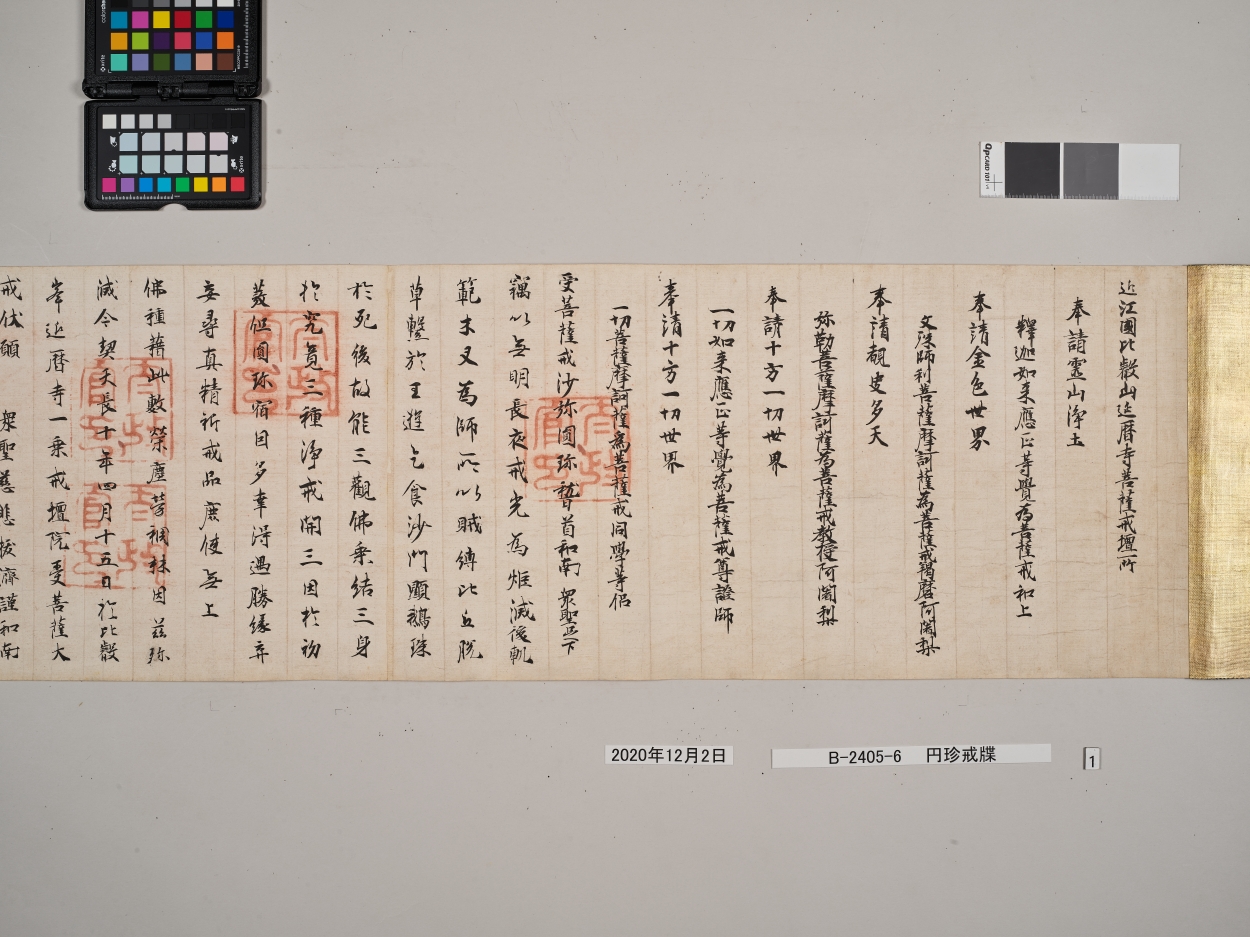 近江國比叡山延暦寺菩薩戒壇所
奉請靈山浄土
釋迦如来應正等覺為菩薩戒和上
奉請金色世界
文殊師利菩薩摩訶薩為菩薩戒羯磨阿闍梨
奉請覩史多天
弥勒菩薩摩訶薩為菩薩戒教授阿闍梨
奉請十方一切世界
一切如来應正等覺為菩薩戒尊證師
奉請十方一切世界
一切菩薩摩訶薩為菩薩戒同學等侶
受菩薩戒沙弥圓珎稽首和南 衆聖足下
竊以無明長夜戒光為炬滅後軌
範木叉為師所以賊縛比丘脱
草繫於王遊乞食沙門顯鵝珠
於死後故能三觀佛乗結三身
於究竟三種浄戒開三因於初
羙但圓珎宿因多幸得遇勝縁弃
妄尋真精祈戒品庶使無上
佛種藉此敷榮塵勞稠林因茲殄
滅今契天長十年四月十五日於比叡
峯延暦寺一乗戒壇院受菩薩大
戒伏願 衆聖慈悲抜濟謹和南
2020年12月2日
B-2405-6 円珍戒牒
1
QPCARD 101
x-rite